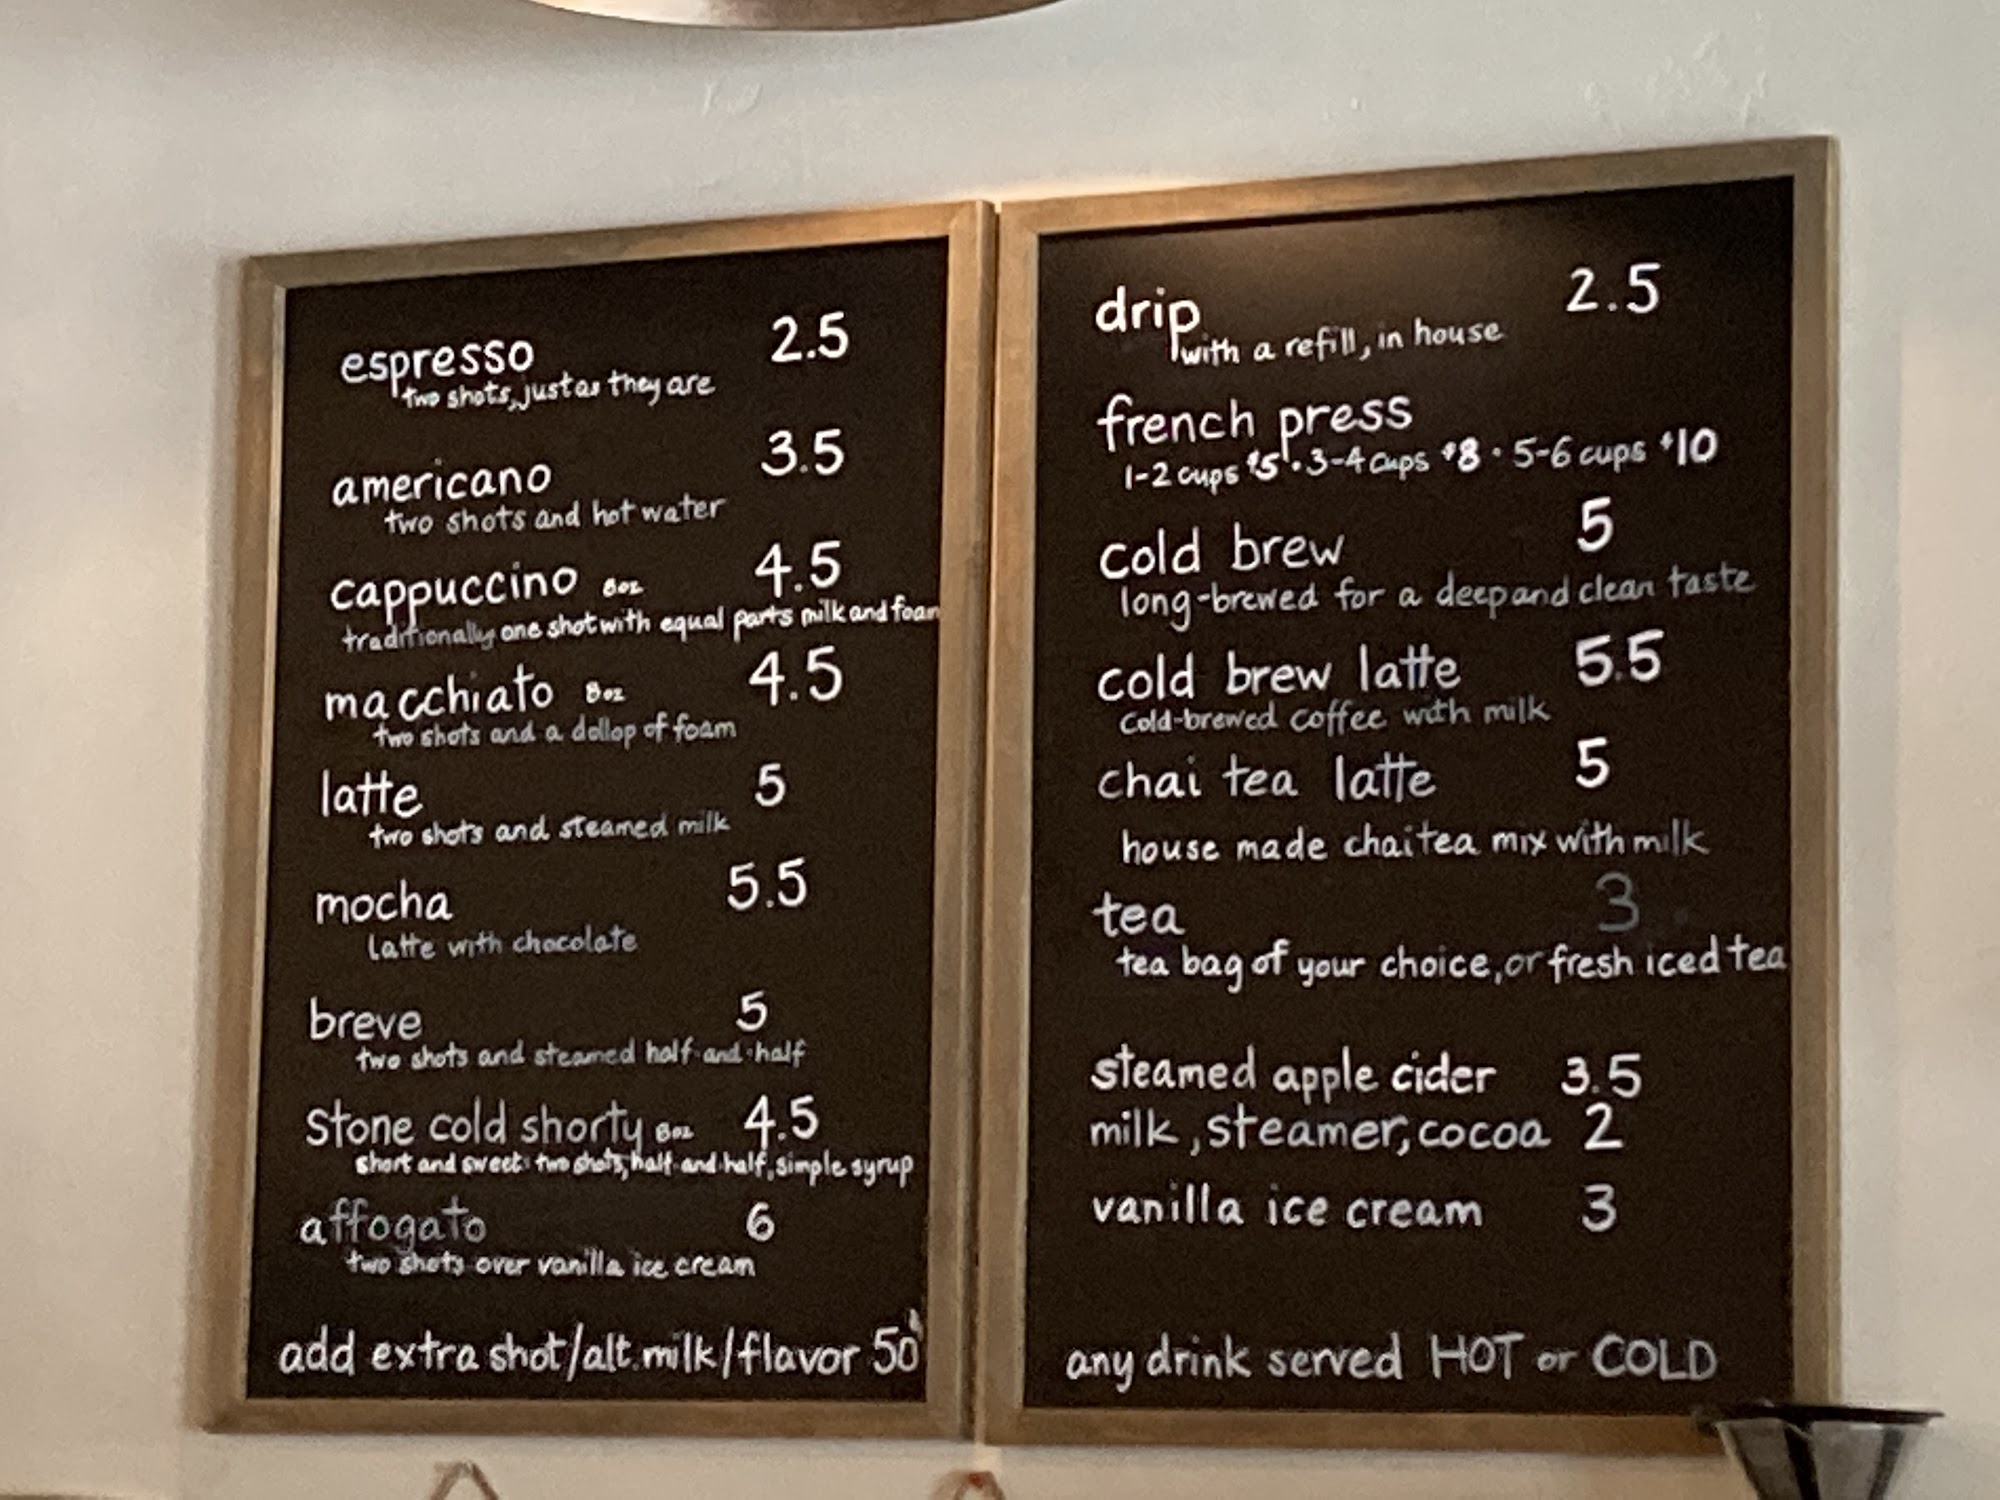 espresso 2.5
two shots, just as they are
americano 3.5
two shots and hot water
cappuccino 8oz 4.5
traditionally one shot with equal parts milk and foam
macchiato 8oz 4.5
two shots and a dollop of foam
latte 5
two shots and steamed milk
mocha 5.5
latte with chocolate
breve 5
two shots and steamed half-and-half
stone cold shorty 8oz 4.5
short and sweet: two shots, half and half, simple syrup
affogato 6
two shots over vanilla ice cream
add extra shot/alt. milk/flavor 50
drip 2.5
with a refill, in house
french press
1-2 cups $5 • 3-4 cups $8 • 5-6 cups $10
cold brew 5
long-brewed for a deep and clean taste
cold brew latte 5.5
cold-brewed coffee with milk
chai tea latte 5
house made chai tea mix with milk
tea 3
tea bag of your choice, or fresh iced tea
steamed apple cider 3.5
milk, steamer, cocoa 2
vanilla ice cream 3
any drink served HOT or COLD